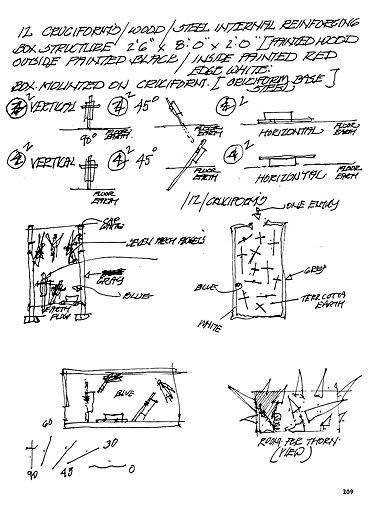 12 CRUCIFORMS/WOOD/STEEL INTERNAL REINFORCING
BOX STRUCTURE / 2'6" X 8'0 X 2'0" [PAINTED WOOD
OUTSIDE PAINTED BLACK / INSIDE PAINTED RED
EDGE WHITE.
BOX MOUNTED ON CRUCIFORM. [CRUCIFORM BASE]
STEEL
2 VERTICAL 2 45° 2
90° FLOOR EARTH HORIZONTAL FLOOR EARTH
2 VERTICAL 2 45° 2
FLOOR EARTH FLOOR EARTH HORIZONTAL FLOOR EARTH
/12/CRUCIFORMS
ONE ENTRY
SEVEN MECH ANGELS
GRAY
BLUE
EARTH FLOOR
GREY
BLUE
TERRCOTTA
EARTH
WHITE
BLUE
60
30
90 45 0
ROOM FOR THORN.
(VIEW)
209